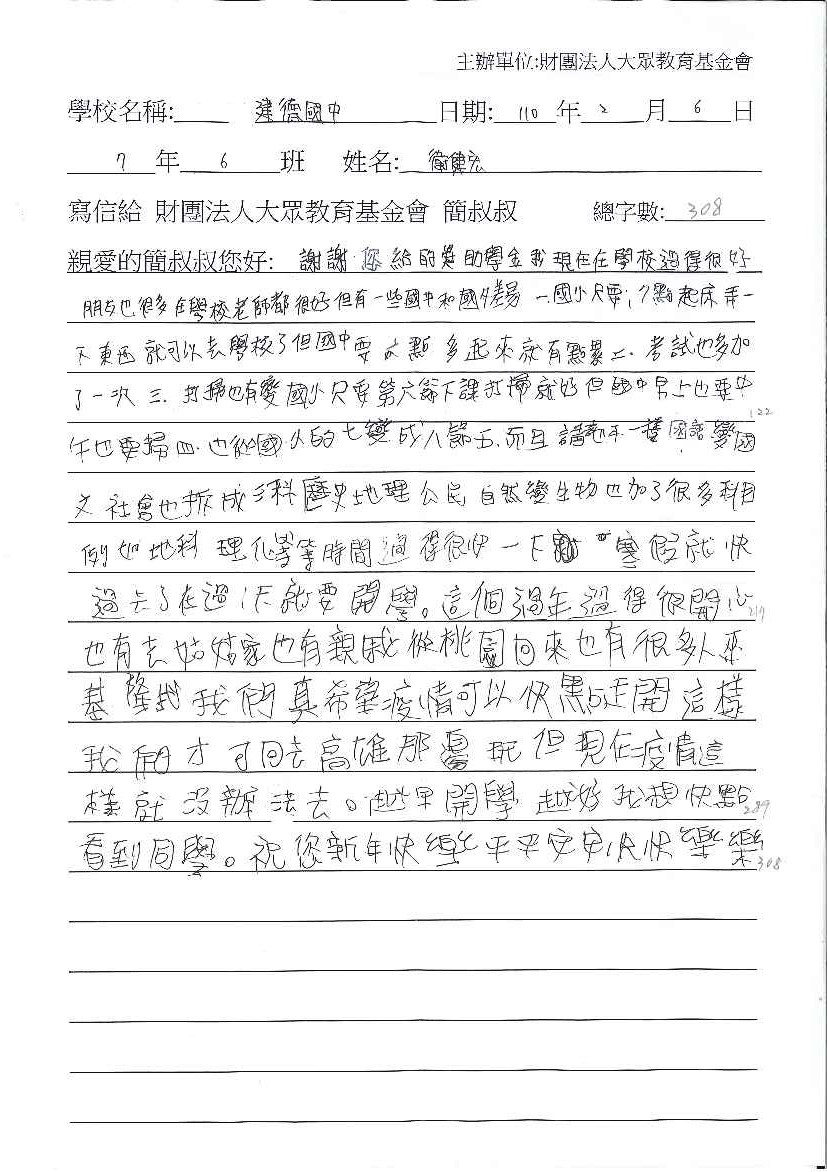 主辦單位:財團法人大眾教育基金會
學校名稱: 建德國中 日期: 110 年 2 月 6 日
7 年 6 班 姓名: 衛健宏
寫信給 財團法人大眾教育基金會 簡叔叔 總字數: 308
親愛的簡叔叔您好: 謝謝您給的獎助學金我現在在學校過得很好
朋友也很多在學校老師都很好但有一些國中和國小差 一.國小只要 7點起床弄一
下東西就可以去學校了但國中要六點多起來就有點累二.考試也多加
了一次 三.打掃也有變國小只要第六節下課打掃就好但國中早上也要中
122
午也要掃四.也從國小的七變成八節五.而且 不一樣國語變國
文社會也拆成三科歷史地理公民自然變生物也加了很多科目
例如地科 理化等等時間過得很快一下 寒假就快
過去了在過 下就要開學。這個過年過得很開心
217
也有去姑姑家也有親戚從桃園回來也有很多人來
基隆找我們真希望疫情可以快點走開這樣
我們才可回去高雄那邊玩但現在疫情這
樣就沒辦法去。越早開學越好我想快點
289
看到同學。祝您新年快樂平平安安快快樂樂
308